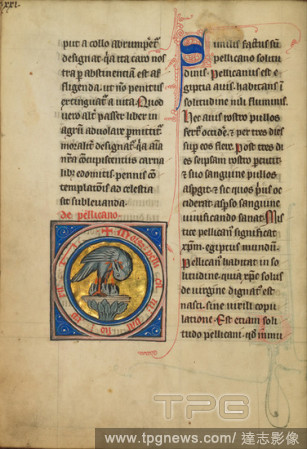 xxi.
put a collo abrumpet
designat qa ita caro nos
tra p abstinentiam est af
fligenda ut no penitus
extinguat a uita. Quod
uero alt passer liber in
agrum aduolare pmittit
moralit designat qa
concupiscentiis carna
lib exemtis pennis con
templationis ad celestia
sit subleuanda.
de pellicano
Similis factus sum
pellicano solitu
dinis. Pellicanus est e
giptia auis habitans in
solitudine nili fluminis.
Hec auis rostro pullos
suos occidit, et per tres dies
sup eos flet. Post tres di
es seipsam rostro percutit
et suo sanguine pullos
aspgit et sic quos pus oc
ciderat aspso sanguine
uiuificando sanat. Mis
tice pellicanus significat
xpm, egiptus mundum.
Pellicanus habitat in so
litudine, qua xps solus
de uirgine dignat est
nasci sine uirili copu
latione. Est etiam soli
tudo pellicani, qd inmu
TPG
www.tpgnews.com/達志影像